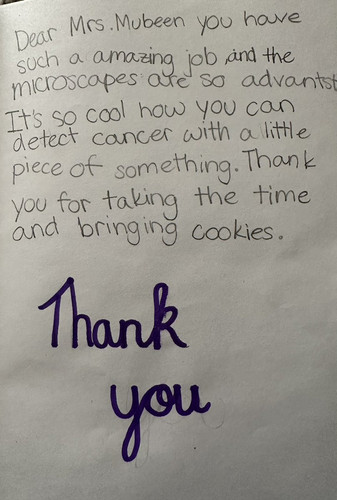 Dear Mrs. Mubeen you have
such a amazing job, and the
microscapes are so advantst
It's so cool how you can
detect cancer with a little
piece of something. Thank
you for taking the time
and bringing cookies.
Thank
you